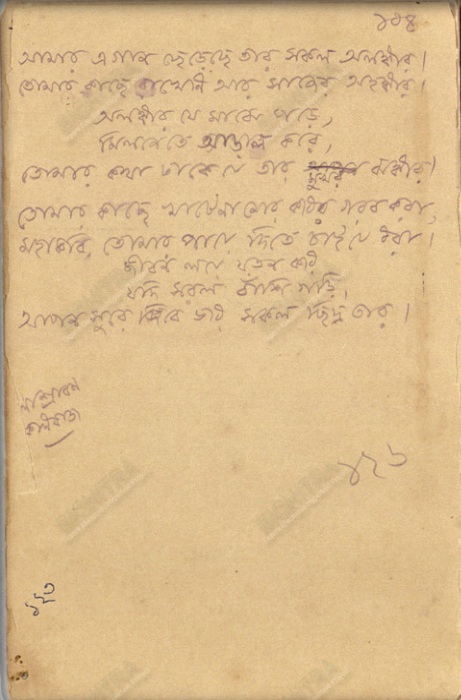 ১০৪
আমার এ গান ছেড়েছে তার সকল অলঙ্কার।
তোমার কাছে রাখেনি আর সাজের অহঙ্কার।
অলঙ্কার যে মাঝে পড়ে,
মিলনেতে আড়াল করে,
তোমার কথা ঢাকে যে তার মুখর ঝঙ্কার।
তোমার কাছে খাটেনা মোর কবির গরব করা,
মহাকবি, তোমার পায়ে দিতে চাই যে ধরা।
জীবন লয়ে যতন করি
যদি সরল বাঁশি গড়ি,
আপন সুরে দিবে ভরি সকল ছিদ্র তার।
১২৬
১২৩